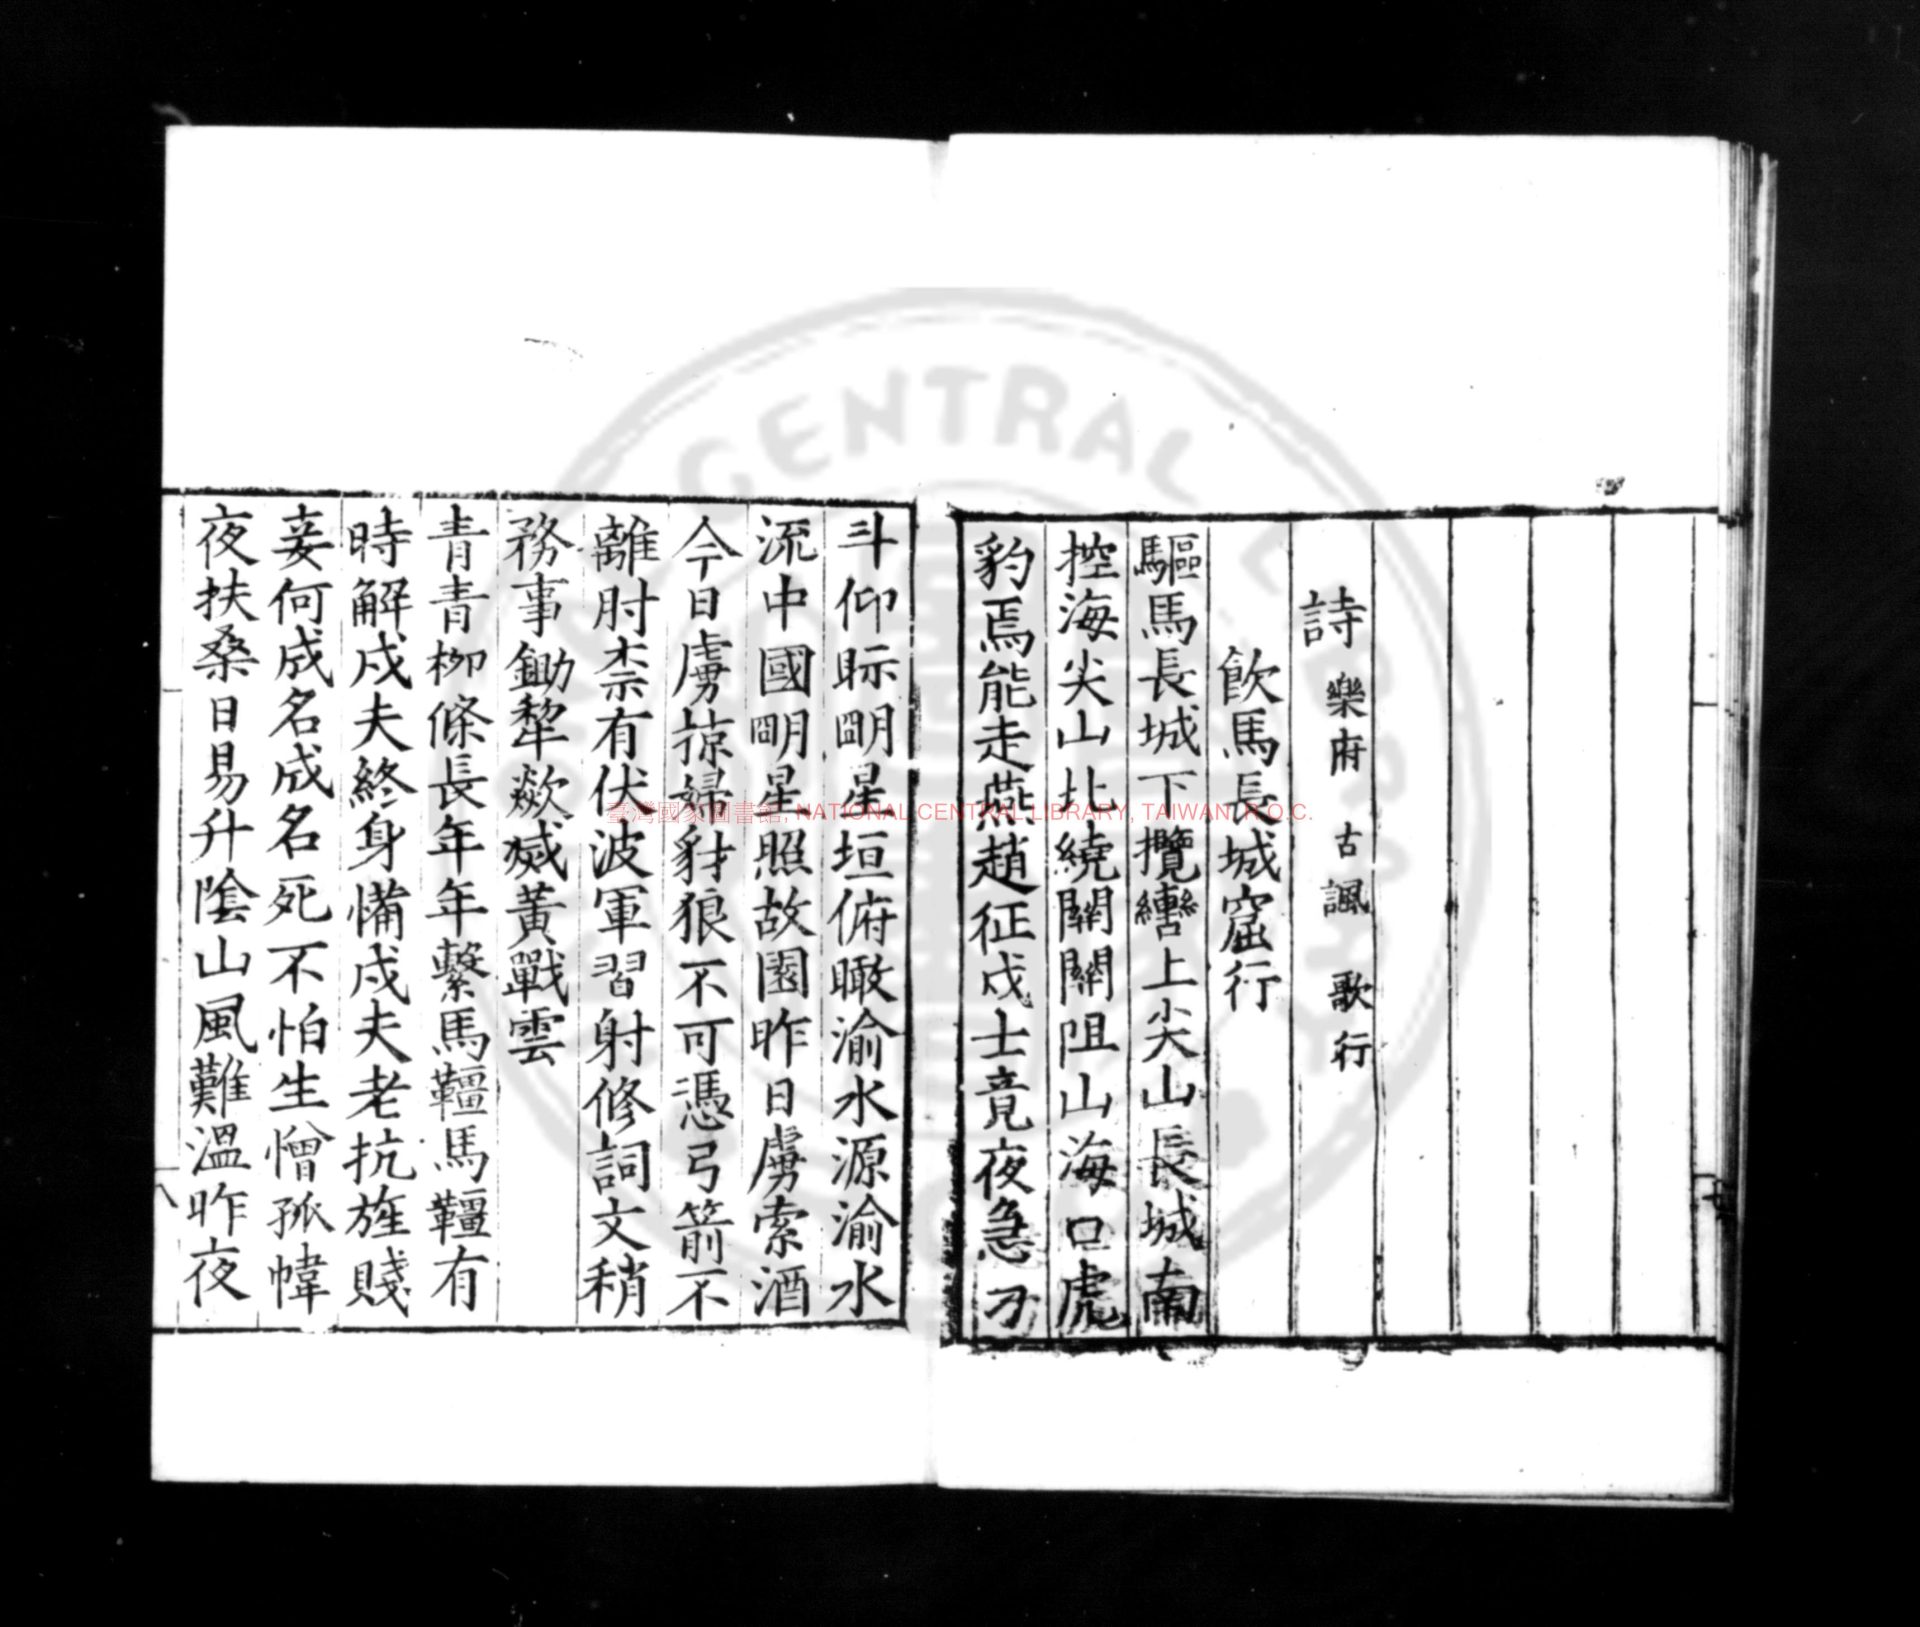 詩 樂府 古諷 歌行
飲馬長城窟行
驅馬長城下攬轡上尖山長城南
控海尖山北繞關關阻山海口虎
豹焉能走燕趙征戍士竟夜急刁
斗仰眎朙星垣俯瞰渝水源渝水
流中國朙星照故園昨日虜索酒
今日虜掠婦豺狼不可憑弓箭不
離肘柰有伏波軍習射修詞文稍
務事鋤犂歘烕黃戰雲
青青栁條長年年繫馬韁馬韁有
時解戍夫終身備戍夫老抗旌賤
妾何成名成名死不怕生憎孤幃
夜扶桑日易升隂山風難溫昨夜
臺灣國家圖書館, NATIONAL CENTRAL LIBRARY, TAIWAN, R.O.C.